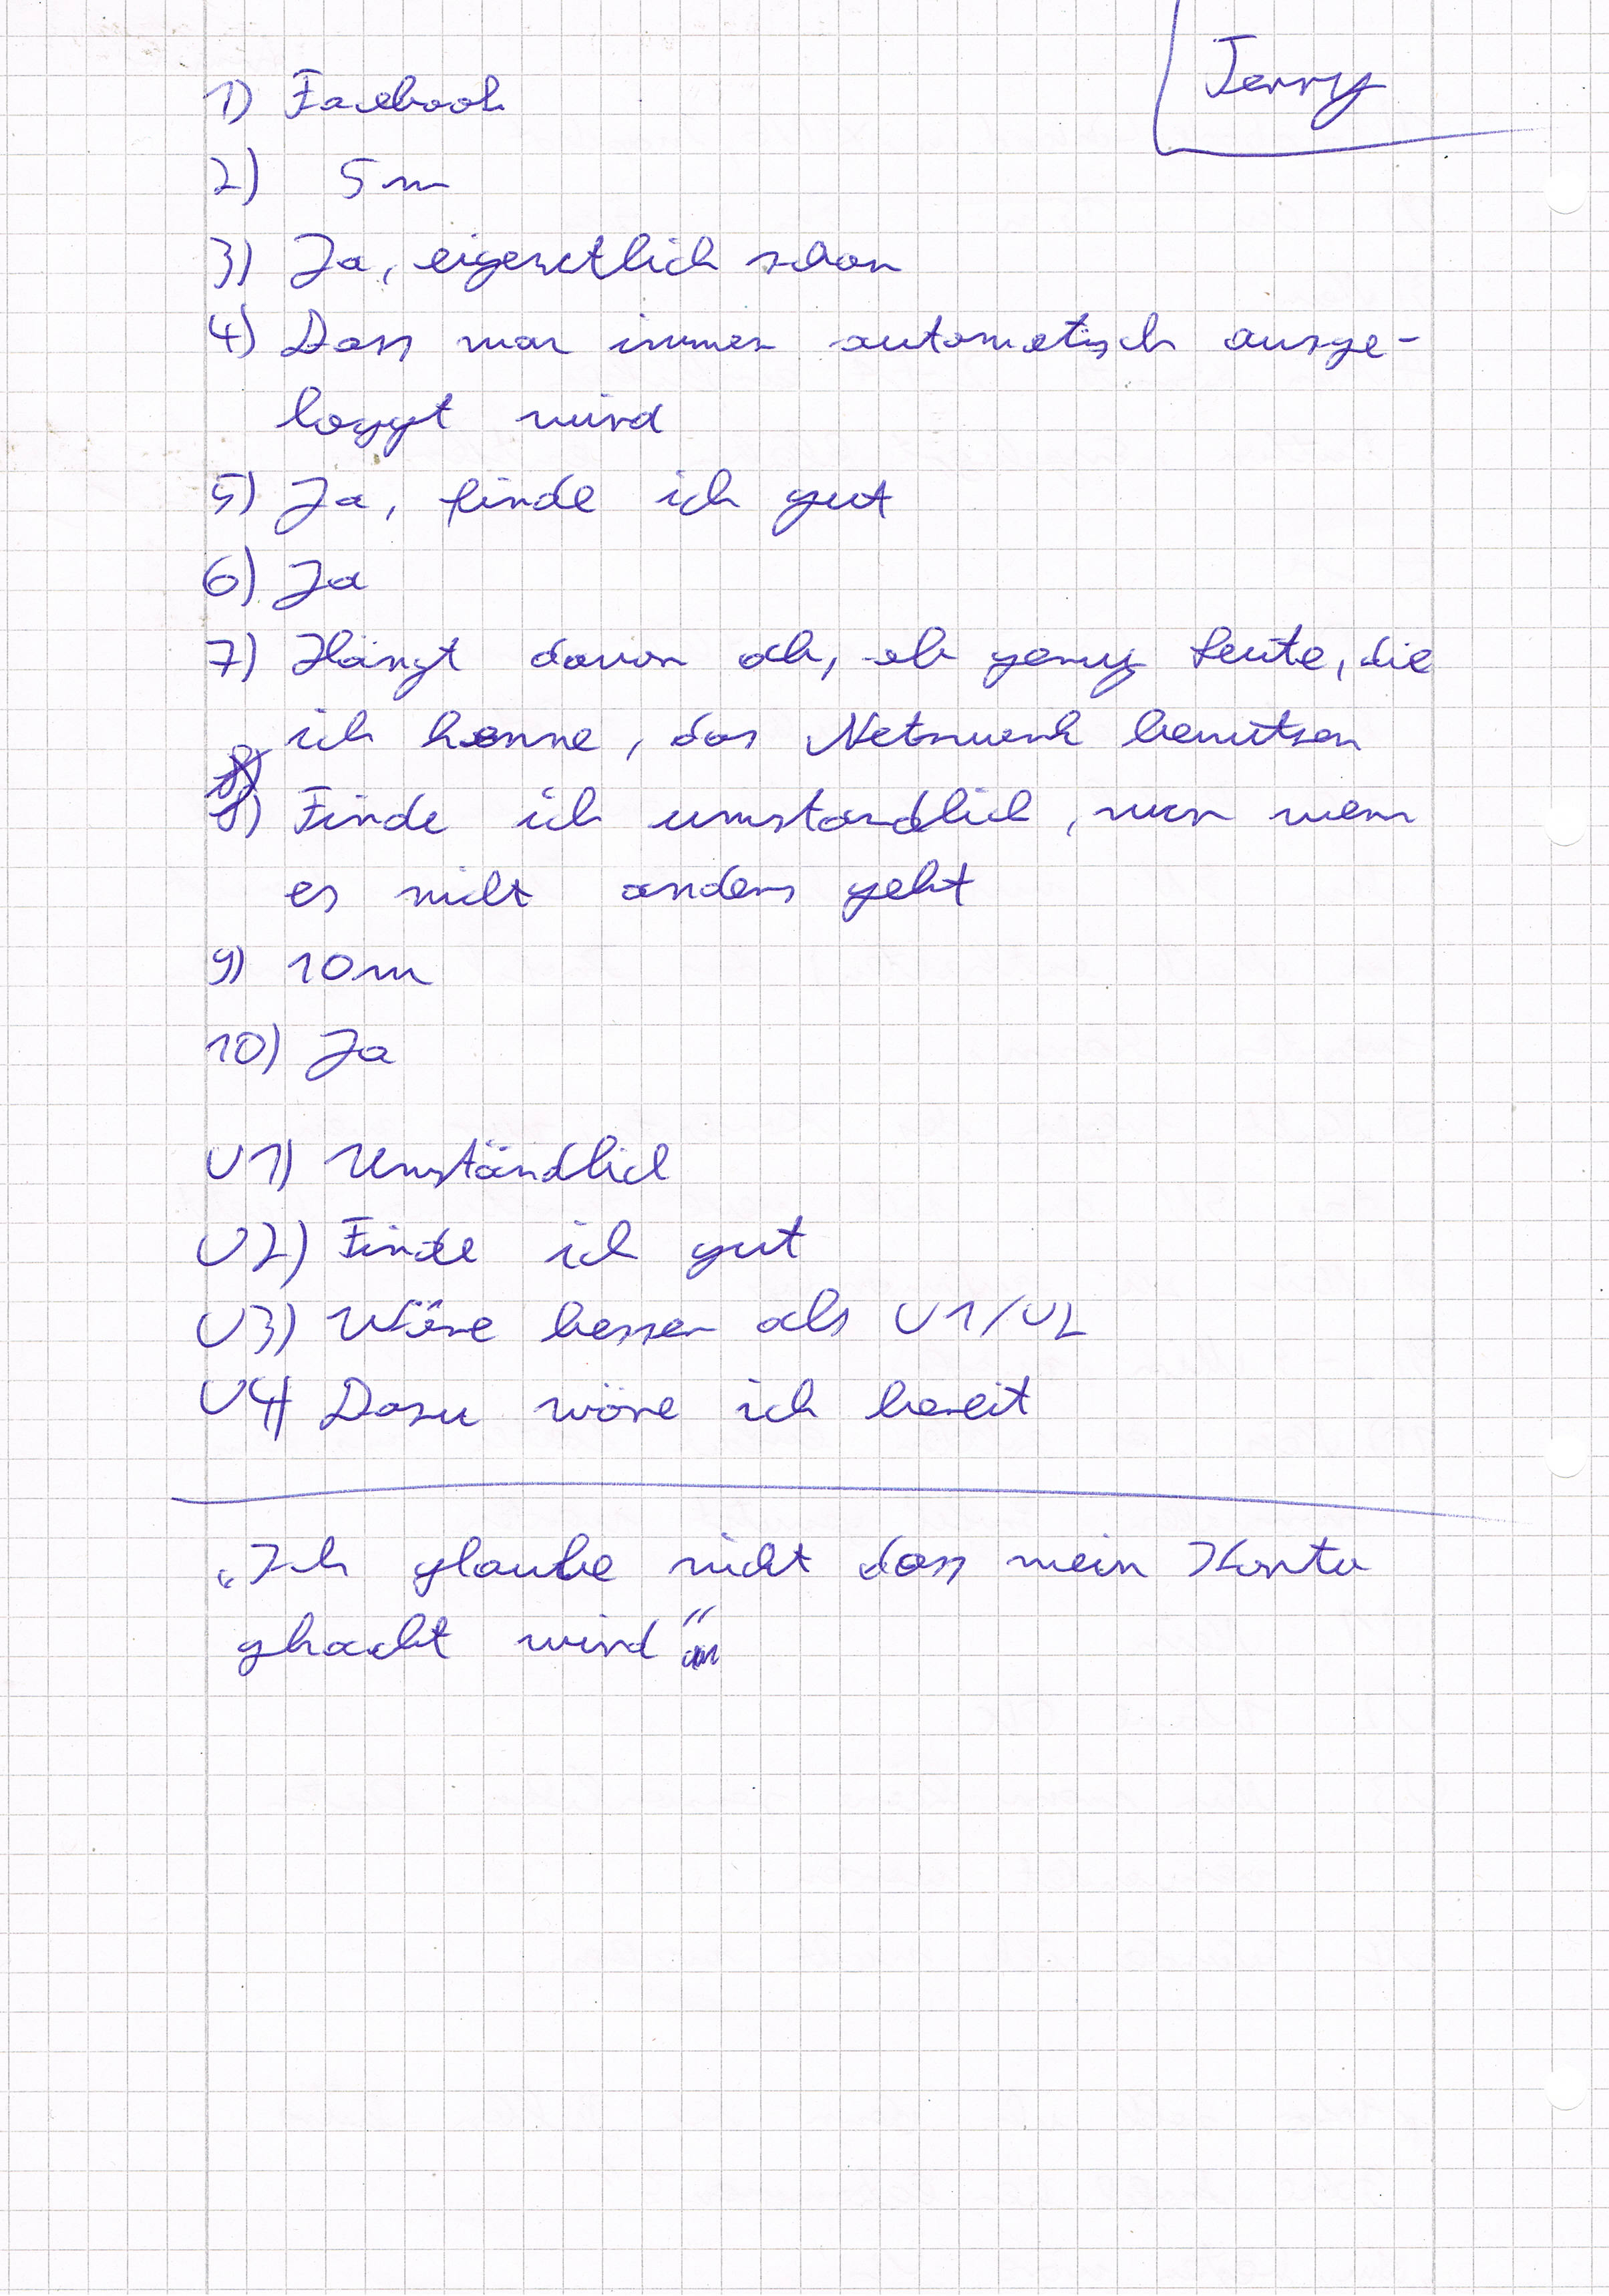 Jerry
1) Facebook
2) 5m
3) Ja, eigentlich schon
4) Dass man immer automatisch ausge-
loggt wird
5) Ja, finde ich gut
6) Ja
7) Hängt davon ab, ob genug Leute, die
ich kenne, das Netzwerk benutzen
8) Finde ich umständlich, nur wenn
es nicht anders geht
9) 10m
10) Ja
U1) Umständlich
U2) Finde ich gut
U3) Wäre besser als U1/U2
U4) Dazu wäre ich bereit
„Ich glaube nicht dass mein Konto
ghackt wird"